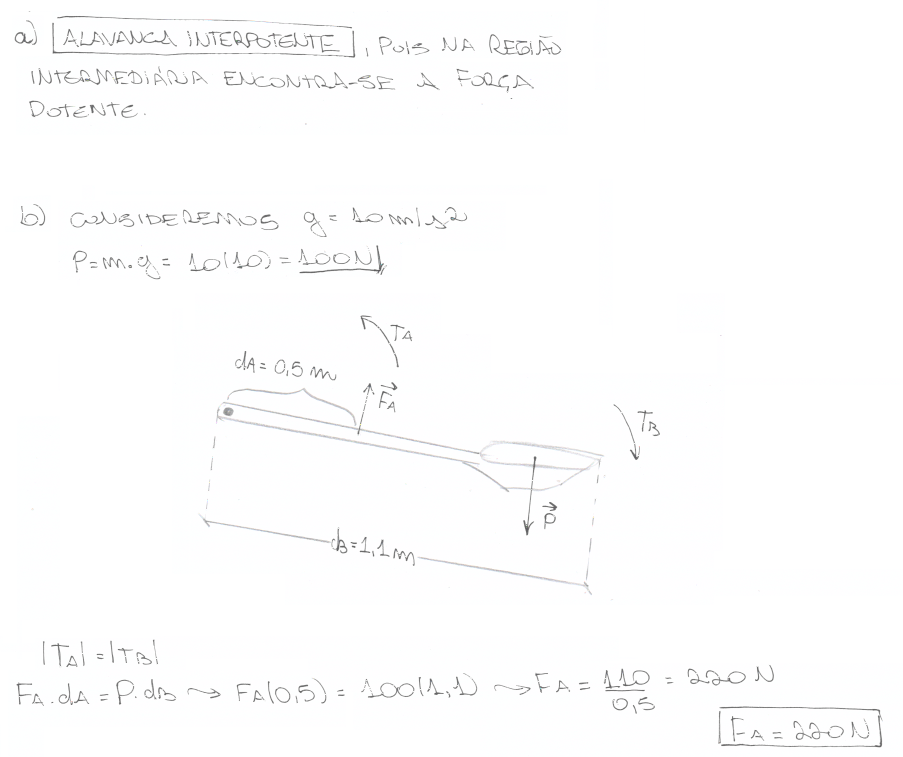 a) ALAVANCA INTERPOTENTE, POIS NA REGIÃO
INTERMEDIÁRIA ENCONTRA-SE A FORÇA
POTENTE.
b) CONSIDEREMOS g = 10 m/s2
P = m.g = 10(10) = 100N
TA
dA = 0,5 m
FA
TB
P
dB = 1,1 m
|TA| = |TB|
FA.dA = P.dB ⇝ FA(0,5) = 100(1,1) ⇝ FA = 110/0,5 = 220 N
FA = 220 N